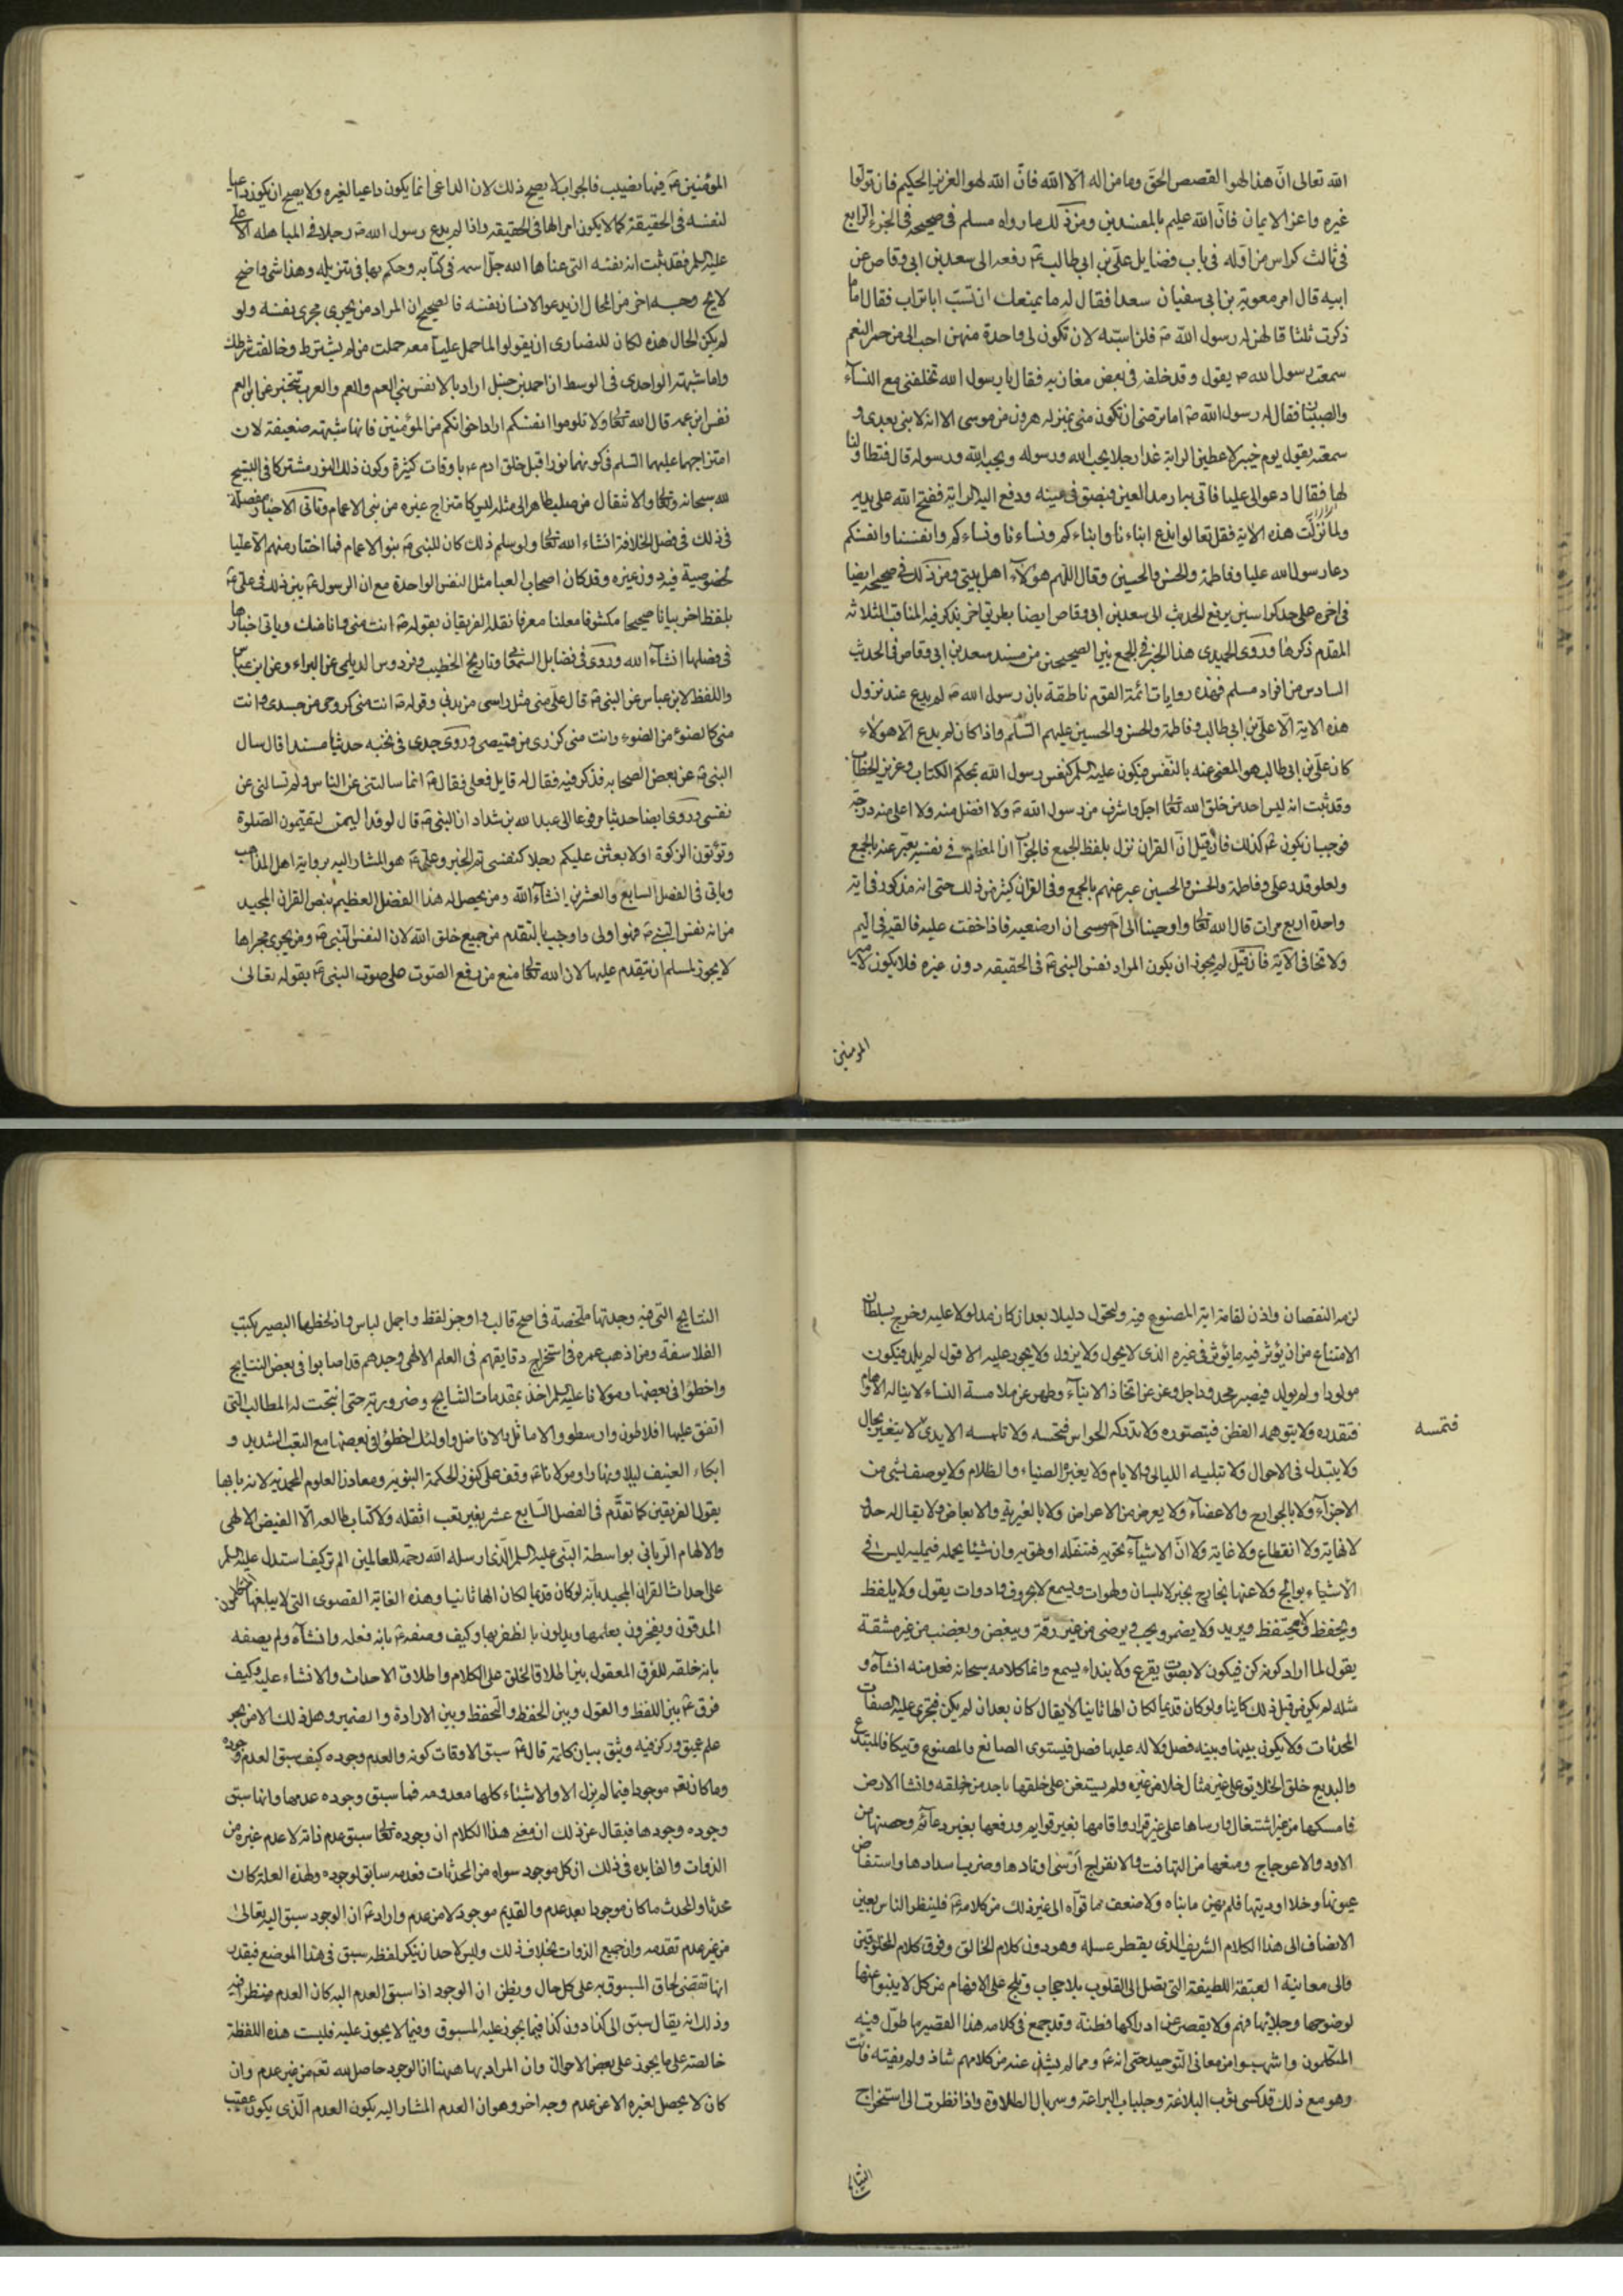 الله تعالى انّ هذا لهو القصص الحقّ وما من اله الّا الله فانّ الله لهو العزيز الحكيم فان تولّوا
غيره واعز الايمان فانّ الله عليم بالمفسدين ومن ذلك ما رواه مسلم في صحيحه في الجزء الرابع
في ثالث كراس من اوله في باب فضايل علي بن ابي طالب ع رفعه الى سعد بن ابي وقاص عن
ابيه قال امر معوية بن ابي سفيان سعدا فقال له ما يمنعك ان تسبّ ابا تراب فقال اما ما
ذكرت ثلثا قالهن له رسول الله ص فلن اسبّه لان تكون لي واحدة منهن احب الى من حمر النعم
سمعت رسول الله ص يقول وقد خلفه في بعض مغازيه فقال يا رسول الله تخلفني مع النسآء
والصبيان فقال له رسول الله ص اما ترضى ان تكون مني بمنزلة هرون من موسى الا انه لا نبي بعدي و
سمعته يقول يوم خيبر لاعطين الراية غدا رجلا يحب الله ورسوله ويحبه الله ورسوله قال فتطاولنا
لها فقال ادعوا لي عليا فاتى به ارمد العين فبصق في عينه ودفع اليه الراية ففتح الله على يديه
ولما نزلت هذه الآية فقل تعالوا ندع ابناءنا وابناءكم ونساءنا ونساءكم وانفسنا وانفسكم
دعا رسول الله عليا وفاطمة والحسن والحسين وقال اللهم هؤلآء اهل بيتي ومن ذلك في صحيحه ايضا
في اخره على حد كراسين يرفع الحديث الى سعد بن ابي وقاص ايضا بطريق اخر يذكر فيه المناقب الثلاثه
المقدم ذكرها وروى الحميدي هذا الخبر في الجمع بين الصحيحين من مسند سعد بن ابي وقاص في الحديث
السادس من افراد مسلم فهذه روايات ائمة القوم ناطقة بان رسول الله ص لم يدع عند نزول
هذه الاية الّا علي بن ابي طالب وفاطمة والحسن والحسين عليهم السّلم واذا كان لم يدع الّا هولاء
كان علي بن ابي طالب هو المعنى عنه بالنفس فيكون عليه السلم كنفس رسول الله بحكم الكتاب وعزيز الخطاب
وقد ثبت انه ليس احد من خلق الله تعالى اجل واشرف من رسول الله ص ولا افضل منه ولا اعلى منه درجة
فوجب ان يكون ع كذلك فان قيل انّ القران نزل بلفظ الجمع فالجواب ان المعظم في نفسه يعبّر عنه بالجمع
ولعلو قدر علي وفاطمة والحسن والحسين عبر عنهم بالجمع وفي القران كثير من ذلك حتى انه مذكور في اية
واحدة اربع مرات قال الله تعالى واوحينا الى ام موسى ان ارضعيه فاذا خفت عليه فالقيه في اليم
ولا تخافي الآية فان قيل لم يجوز ان يكون المراد نفس النبي ع في الحقيقة دون غيره فلا يكون لامير
المومنين
المؤمنين ع فيها نصيب فالجواب لا يصح ذلك لان الداعي انما يكون داعيا لغيره ولا يصح ان يكون داعيا
لنفسه في الحقيقة كما لا يكون امرا لها في الحقيقه واذا لم يدع رسول الله ص رجلا في المباهله الا عليا
عليه السلم فقد ثبت انه نفسه التي عناها الله جلّ اسمه في كتابه وحكم بها في تنزيله وهذا شي واضح
لايح وجـــه اخر من المحال ان يدعو الانسان نفسه فالصحيح ان المراد من يجرى مجرى نفسه ولو
لم يكن الحال هذه لكان للنصارى ان يقولوا لما حمل عليا معه حملت من لم يشترط وخالفت شرطك
واما شبهة الواحدي في الوسيط ان احمد بن حنبل اراد بالانفس بني العم والعرب تخبر عن ابن العم
نفس ابن عمه قال الله تعالى ولا تلمزوا انفسكم اراد اخوانكم من المؤمنين فانها شبهة ضعيفة لان
امتزاجهما عليهما السلم في كونهما نورا قبل خلق ادم ع باوقات كثيرة وكون ذلك النور مشتركا في التسبيح
لله سبحانه وتعالى والانتقال من صلب طاهر الى مثله ليس كامتزاج غيره من بني الاعمام وتاتي الاخبار مفصلة
في ذلك في فصل الخلافة انشاء الله تعالى ولو سلم ذلك كان للنبي ص بنو الاعمام فما اختار منهم الا عليا
لخصوصية فيه دون غيره وقد كان اصحاب العبا مثل النفس الواحدة مع ان الرسول ع بين ذلك في علي ع
بلفظ اخر بيانا صحيحا مكشوفا معلنا معرفا نقله الفريقان بقوله ص انت مني وانا منك وياتي اخبارها
في فصلها انشآء الله وروى في فضايل السمعاني وتاريخ الخطيب وفردوس الديلمي عن البراء وعن ابن عباس
واللفظ لابن عباس عن النبي ص قال علي مني مثل راسي من بدني وقوله ص انت مني كروحي من جسدي وانت
مني كالضوء من الضوء وانت مني كزري من قميصي وروى جدي في نخبه حديثا مسندا قال سال
النبي ص عن بعض الصحابه فذكر فيه فقال له قايل فعلي فقال ص انما سالتني عن الناس ولم تسالني عن
نفسي وروى ايضا حديثا مرفوعا الى عبد الله بن شداد ان النبي ص قال لوفد اليمن لتقيمون الصّلوة
وتؤتون الزكوة او لابعثن عليكم رجلا كنفسي تم الخبر وعلي ع هو المشار اليه برواية اهل المذاهب
وياتي في الفصل السابع والعشرين انشآء الله ومن يحصل له هذا الفضل العظيم بنص القران المجيد
من انه نفس النبي ص فهو اولى واوجب بالتقدم من جميع خلق الله لان النفس لنبي ص ومن يجرى مجراها
لا يجوز لمسلم ان يتقدم عليها لان الله تعالى منع من رفع الصّوت على صوت النبي ص بقوله تعالى
لزمه النقصان واذن لقامت اية المصنوع فيه ولتحول دليلا بعد ان كان مدلولا عليه وخرج بسلطان
الامتناع من ان يؤثر فيه ما يؤثر في غيره الذي لا يحول ولا يزول ولا يجوز عليه الافول لم يلد فيكون
مولودا ولم يولد فيصير محدودا جل وعز عن اتخاذ الابنآء وطهر عن ملامسة النساء لا يناله الاوهام
فتقدره ولا يتوهمه الفطن فيتصوره ولا تدركه الحواس فتحسه ولا تلمسه الايدي لا يتغير بحال
فتمسه
ولا يتبدل في الاحوال ولا تبليه الليالي والايام ولا يغيره الضياء والظلام ولا يوصف بشي من
الاجزآء ولا بالجوارح والاعضآء ولا بعرض من الاعراض ولا بالغيرية والابعاض ولا يقال له حد ولا
لانهاية ولا انقطاع ولا غاية ولا انّ الاشيآء تحويه فتقله او تهويه وان شيئا يحمله فيميله ليس في
الاشياء بوالج ولا عنها بخارج يخبر لا بلسان ولهوات ويسمع لا بخروق وادوات يقول ولا يلفظ
ويحفظ ولا يتحفظ ويريد ولا يضمر ويحب ويرضى من غير رقة ويبغض ويغضب من غير مشقة
يقول لما اراد كونه كن فيكون لا بصوت يقرع ولا بنداء يسمع وانما كلامه سبحانه فعل منه انشآه و
مثله لم يكن من قبل ذلك كاينا ولو كان قديما لكان الها ثانيا لا يقال كان بعد ان لم يكن فتجري عليه الصفات
المحدثات ولا يكون بينها وبينه فصل ولا له عليها فضل فيستوى الصانع والمصنوع ويتكافا المبتدع
والبديع خلق الخلايق على غير مثال خلا من غيره ولم يستعن على خلقها باحد من خلقه وانشا الارض
فامسكها من غير اشتغال وارساها على غير قرار واقامها بغير قوايم ورفعها بغير دعائم وحصنها من
الاود والاعوجاج ومنعها من التهافت والانفراج أرسى اوتادها وضرب اسدادها واستفاض
عيونها وخد اوديتها فلم يهن ما بناه ولا ضعف ما قوّاه الى غير ذلك من كلامه ع فلينظر الناس بعين
الانصاف الى هذا الكلام الشريف الذي يقطر عسله وهو دون كلام الخالق وفوق كلام المخلوقين
والى معانيه العبقة اللطيفة التي تصل الى القلوب بلا حجاب وتلج على الافهام من كل لا ينبو عنها
لوضوحها وجلائها فهم ولا يقصر عن ادراكها فطنة وقد جمع في كلامه هذا القصير ما طوّل فيه
المتكلمون واسهبوا من معاني التّوحيد حتى انه ع ومما لم يشذ عنه من كلامهم شاذ ولم يفته فائت
وهو مع ذلك قد كسى ثوب البلاغة وجلباب البراعة وسربال الطلاوة واذا نظرت الى استخراج
النتايج
النتايج التي فيه وجدتها ملخصة في اصح قالب واوجز لفظ واجمل لباس واذ لحظها البصير بكتب
الفلاسفة ومن اذهب عمره في استخراج دقايقهم في العلم الالهي وجدهم قد اصابوا في بعض النتايج
واخطؤا في بعضها ومولانا عليه السلم اخذ بمقدمات النتايج وضروريته حتى انتجت له المطالب التي
اتفق عليها افلاطون وارسطو والاماثل والافاضل واولئك اخطؤا في بعضها مع التعب الشديد و
ابكاء العنيف ليلا ونهارا ومولانا ع وقف على كنوز الحكمة النبوية ومعادن العلوم المحمدية لانه بابها
بقول الفريقين كما تقدّم في الفصل السّابع عشر بغير تعب اثقله ولا كتاب طالعه الّا الفيض الالهي
والالهام الرّباني بواسطة النّبي عليه السلم الذي ارسله الله رحمة للعالمين الم تر كيف استدل عليه السلم
على احداث القران المجيد بانه لو كان قديما لكان الها ثانيا وهذه الغاية القصوى التي لا يبلغها المتكلمون
المدققون ويفخرون بعلمها ويدلون بالظفر بها وكيف وصفه ع بانه فعله وانشآه ولم يصفه
بانه خلقه للفرق المعقول بين اطلاق الخلق على الكلام واطلاق الاحداث والانشاء عليه وكيف
فرق ع بين اللفظ والقول وبين الحفظ والتحفظ وبين الارادة والضمير وهل ذلك الا من بحر
علم عميق وركز فيه وثق بيان كلمته قال ع سبق الاوقات كونه والعدم وجوده كيف سبق العدم وجوده
وما كان نعم موجودا فيما لم يزل الا والاشياء كلها معدومه فما سبق وجوده عدمها وانما سبق
وجوده وجودها فيقال عن ذلك ان معنى هذا الكلام ان وجوده تعالى سبق عدم ذاته لا عدم غيره من
الذوات والفايده في ذلك ان كل موجود سواه من المحدثات فعدمه سابق لوجوده ولهذه العلة كان
محدثا والمحدث ما كان موجودا بعد عدم والقديم موجود لا من عدم واراد ع ان الوجود سبق اليه تعالى
من غير عدم تقدمه وان جميع الذوات بخلاف ذلك وليس لاحد ان ينكر لفظه سبق في هذا الموضع فيقدر
انها تقتضي لحاق المسبوق به على كل حال ويظن ان الوجود اذا سبق العدم اليه كان العدم منتظرا فيه
وذلك انه يقال سبق الى كذا دون كذا فيما يجوز عليه المسبوق وفيما لا يجوز عليه فليست هذه اللفظة
خالصة على ما يجوز على بعض الاحوال وان المراد بها ههنا ان الوجود حاصل لله تعم من غير عدم وان
كان لا يحصل لغيره الا عن عدم وجه اخر وهو ان العدم المشار اليه يكون العدم الّذي يكون عقيب